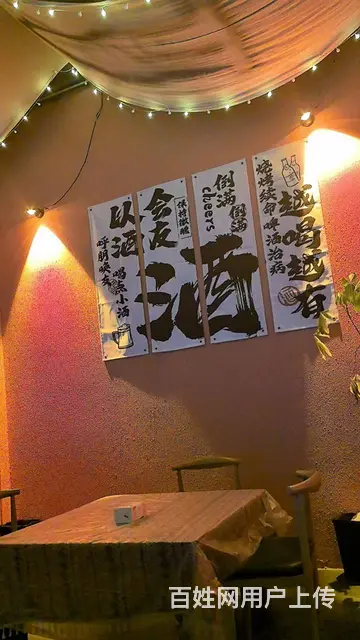 以酒
呼朋唤友 喝点小酒
会友
保持微醺
倒满 倒满
cheers
酒
越喝越有
烧烤续命 啤酒治病
百姓网用户上传